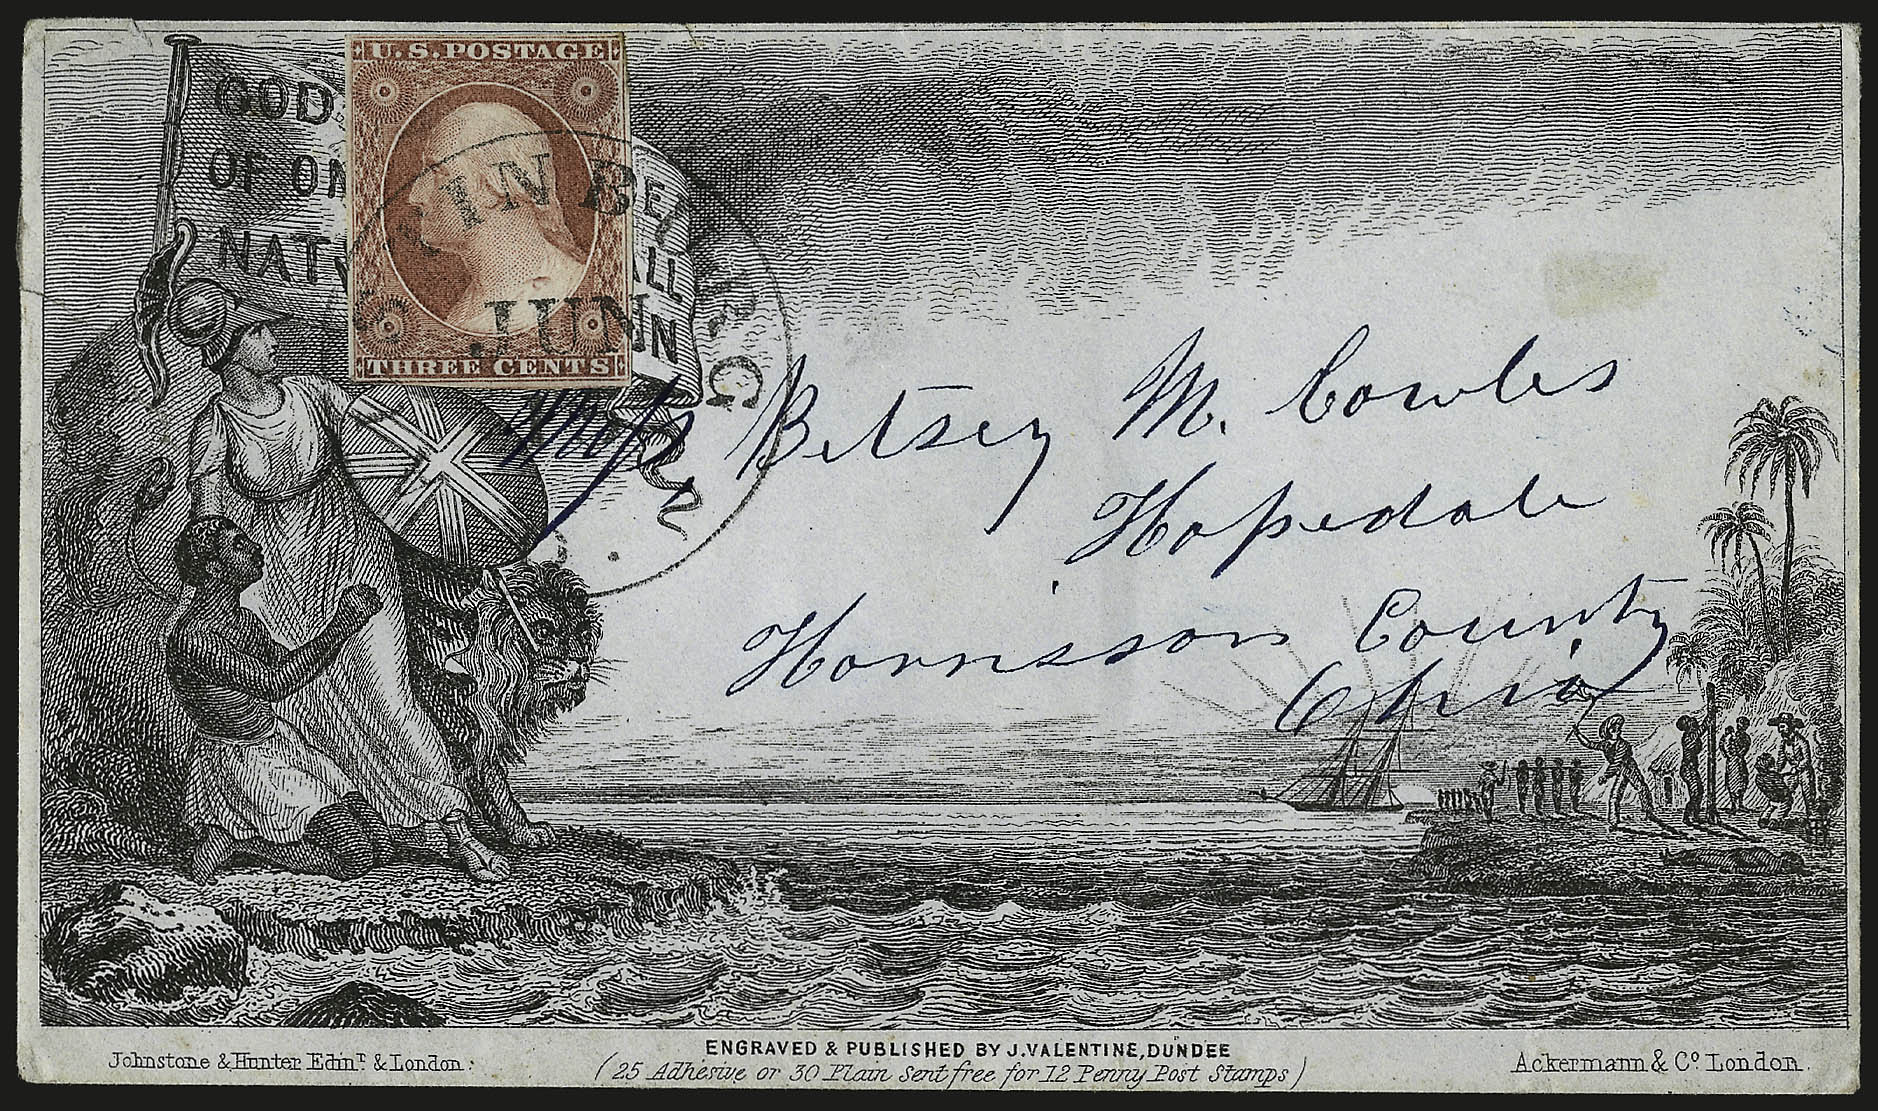 U.S. POSTAGE
THREE CENTS
GOD
OF ON
NAT
ALL
JUN
Miss Betsey M. Cowles
Hopedale
Harrisson County
Ohio
ENGRAVED & PUBLISHED BY J. VALENTINE, DUNDEE
(25 Adhesive or 30 Plain sent free for 12 Penny Post Stamps)
Johnstone & Hunter Edinr. & London.
Ackermann & Co. London.